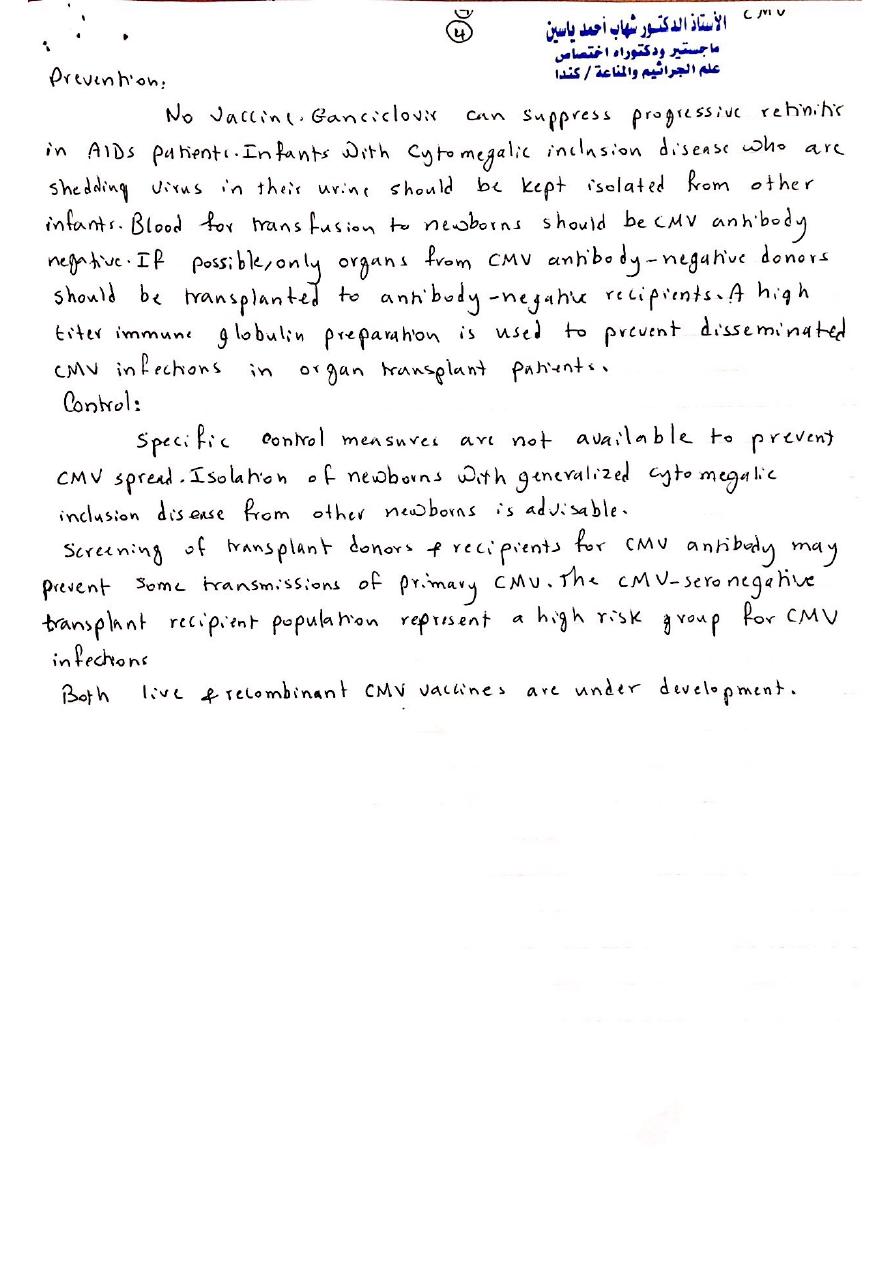 4
الأستاذ الدكتور شهاب أحمد ياسين
ماجستير ودكتوراه اختصاص
علم الجراثيم والمناعة / كندا
CMV
Prevention:
No vaccine. Ganciclovir can suppress progressive retinitis
in AIDs patients. Infants with cytomegalic inclusion disease who are
shedding virus in their urine should be kept isolated from other
infants. Blood for transfusion to newborns should be CMV antibody
negative. If possible, only organs from CMV antibody-negative donors
should be transplanted to antibody-negative recipients. A high
titer immune globulin preparation is used to prevent disseminated
CMV infections in organ transplant patients.
Control:
Specific control measures are not available to prevent
CMV spread. Isolation of newborns with generalized cytomegalic
inclusion disease from other newborns is advisable.
Screening of transplant donors & recipients for CMV antibody may
prevent some transmissions of primary CMV. The CMV-seronegative
transplant recipient population represent a high risk group for CMV
infections
Both live & recombinant CMV vaccines are under development.